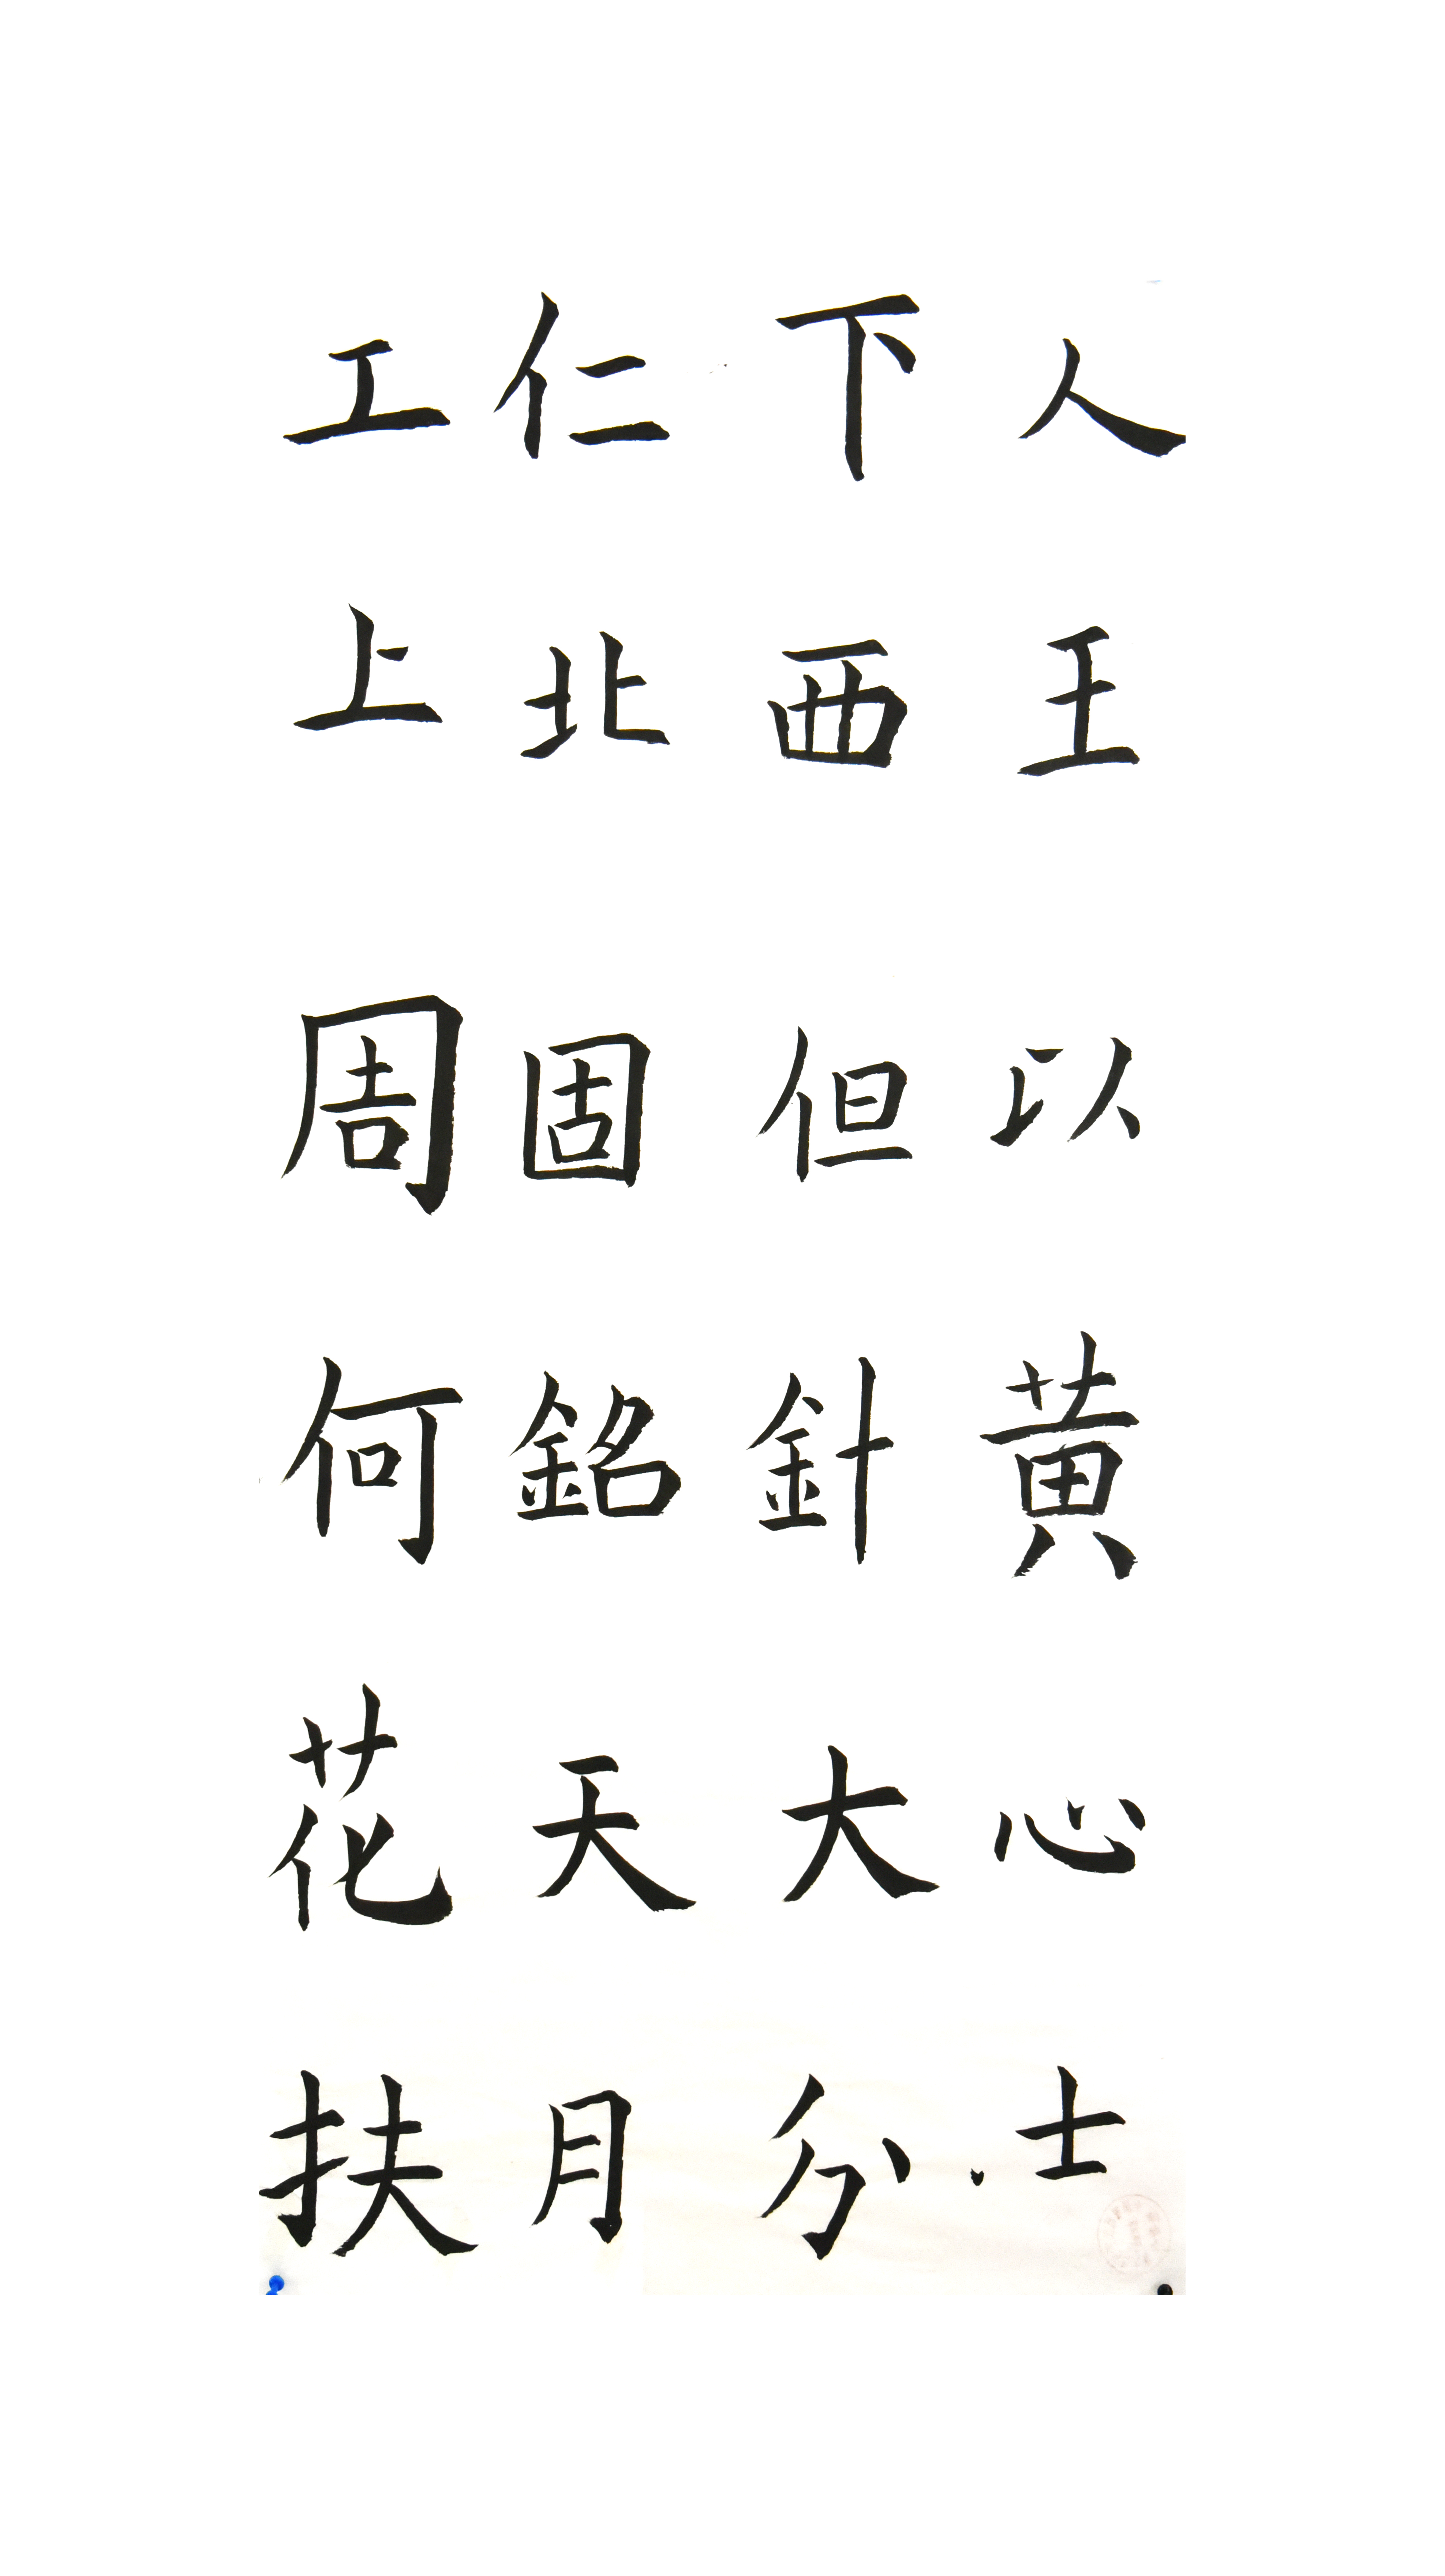 人王以黄心士
下西但針大分
仁北固銘天月
工上周何花扶